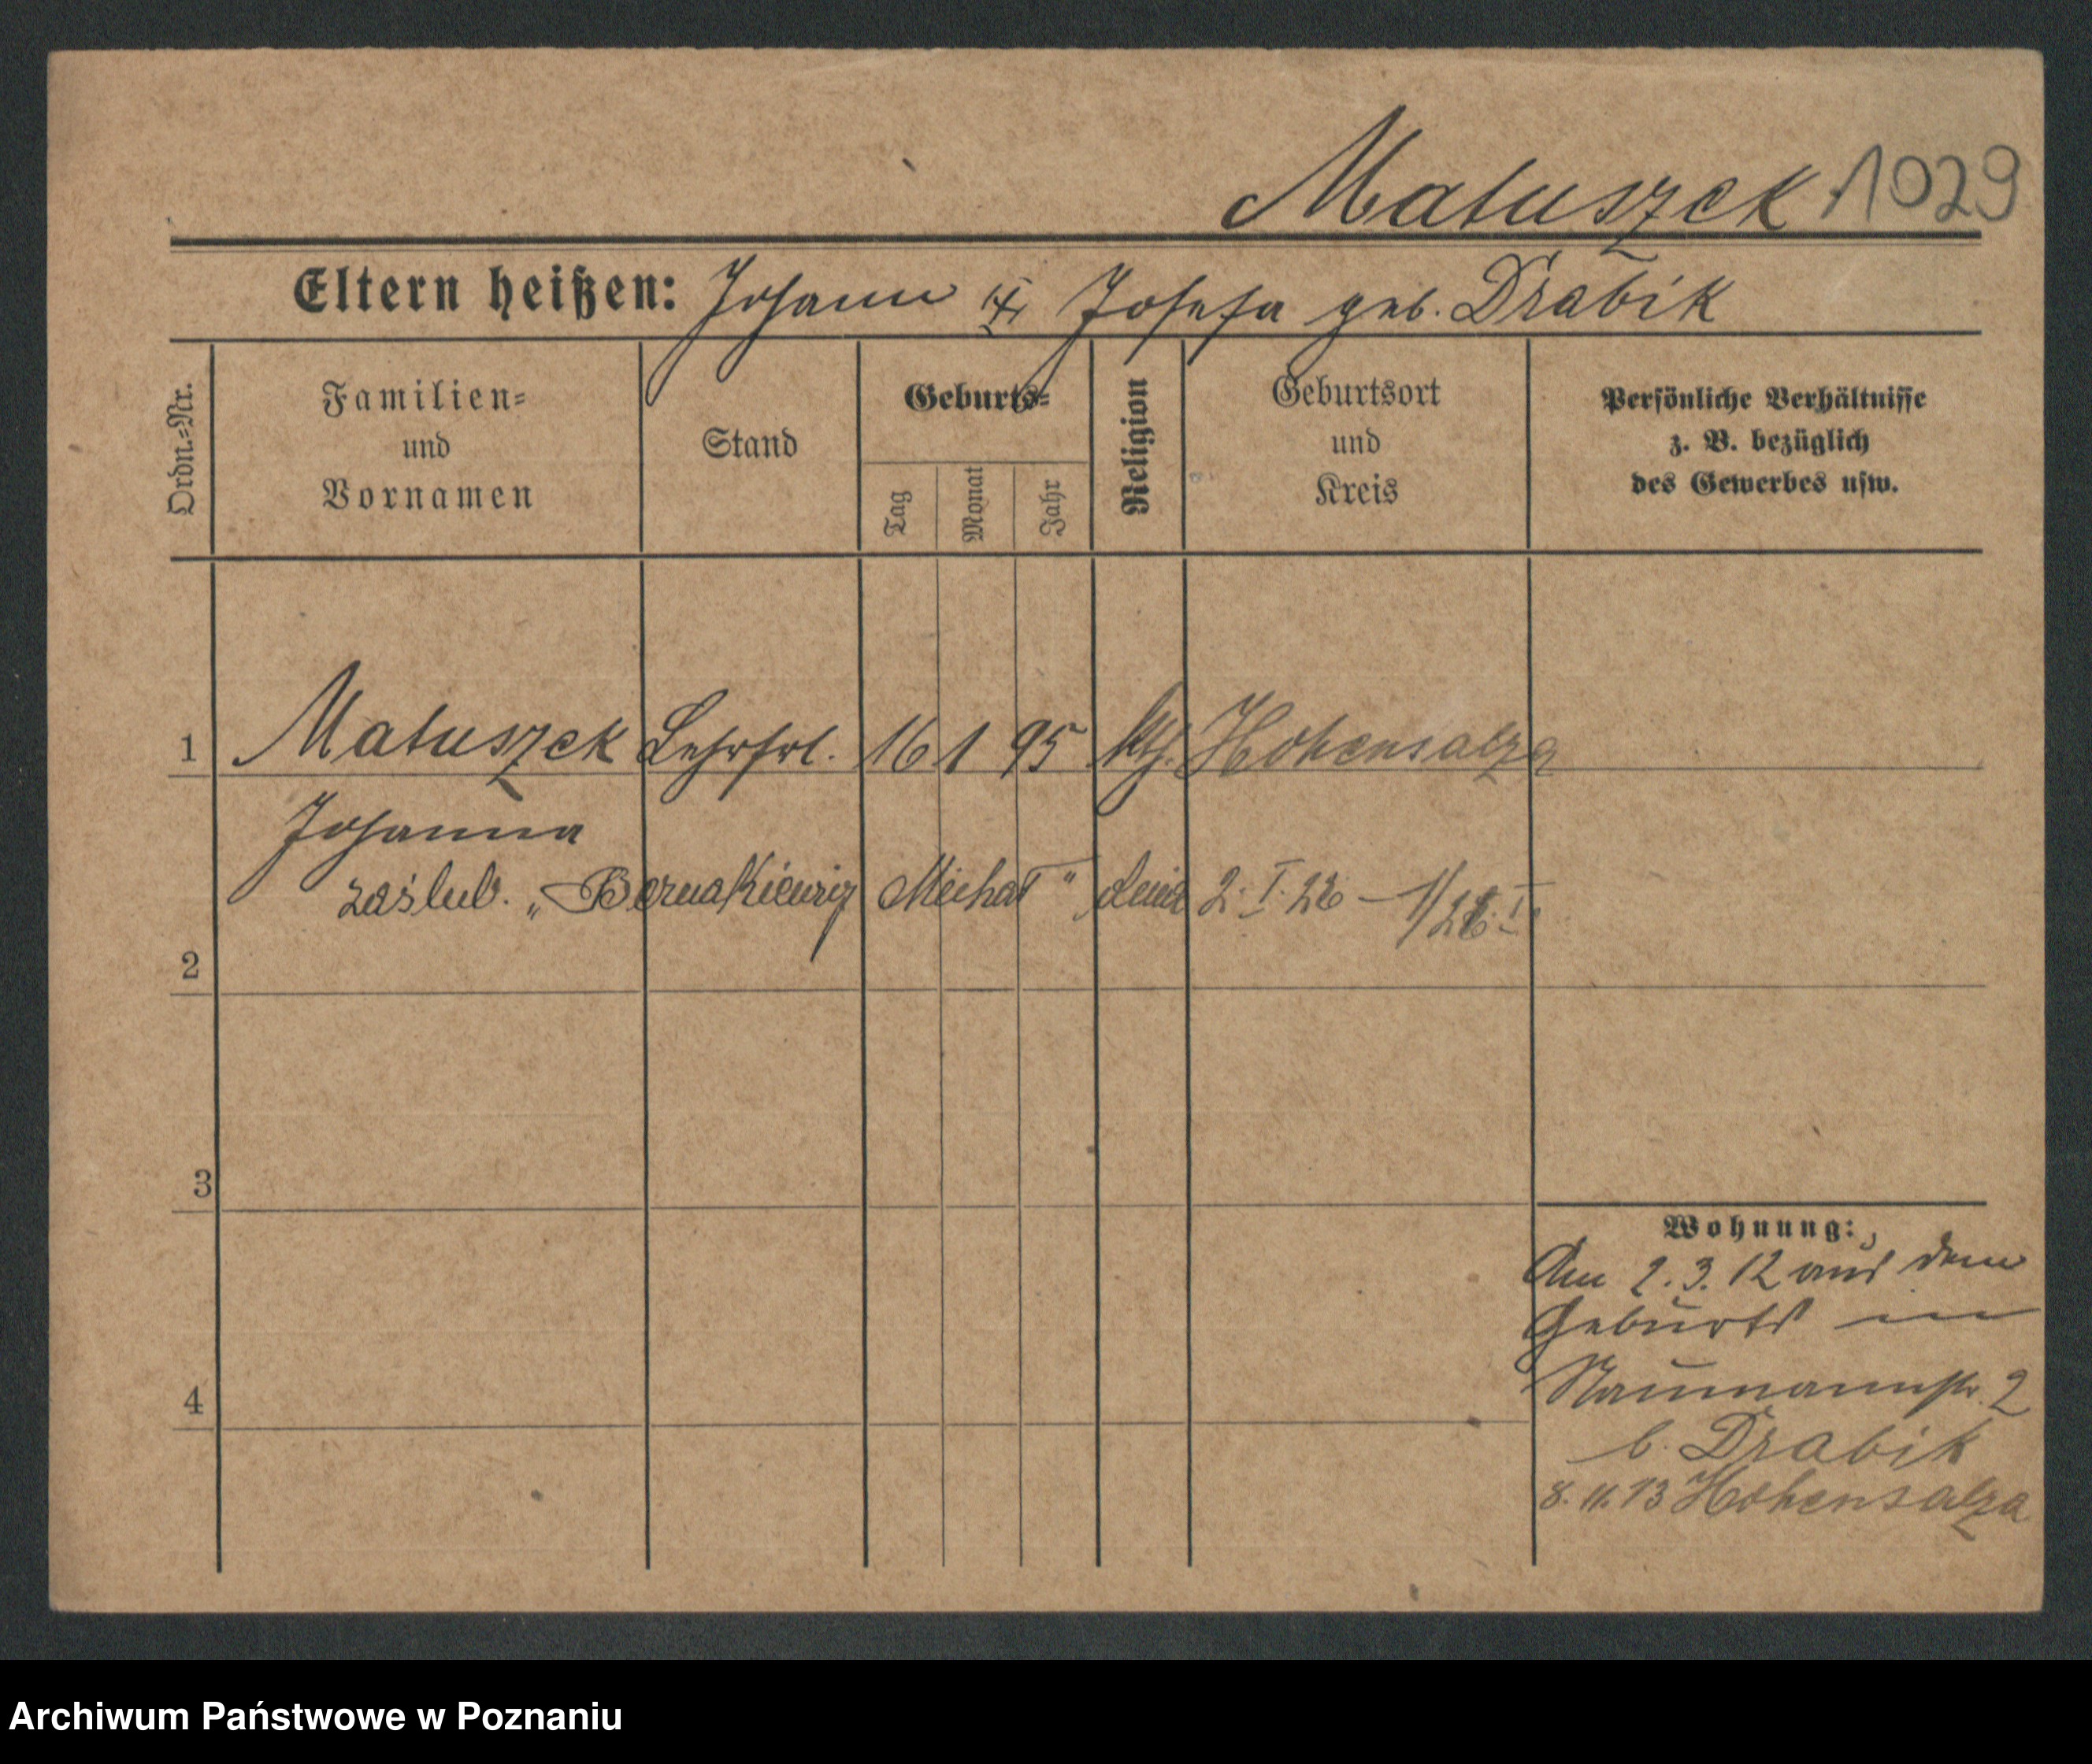 Matuszek 1029
Eltern heißen: Johann u. Josefa geb. Drabik
Ordn.=Nr.
Familien=
und
Vornamen
Stand
Geburts=
Tag
Monat
Jahr
Religion
Geburtsort
und
Kreis
Persönliche Verhältnisse
z. B. bezüglich
des Gewerbes usw.
1 Matuszek Lehrfrl. 16 1 95 kth. Hohensalza
Johanna
zaślub. „Bernakiewicz Michał" dnia 2. I. 26 – 1/26. I.
2
3
4
Wohnung:
Am 2. 3. 12 aus dem
Geburts in
Naumannstr. 2
b. Drabik
8. 11. 13 Hohensalza
Archiwum Państwowe w Poznaniu